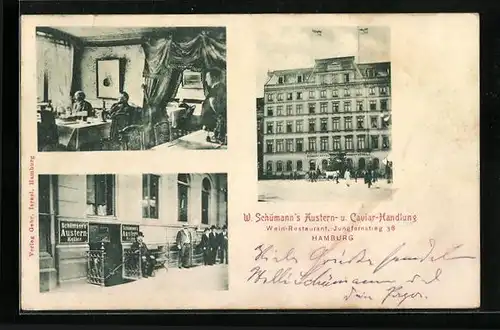 Schümann's
Austern
Keller
Schümann's
Austern
W. Schümann's Austern- u. Caviar-Handlung
Wein-Restaurant, Jungfernstieg 36
HAMBURG
Viele Grüße sendet
Willi Schümann
Verlag Gebr. Israel, Hamburg